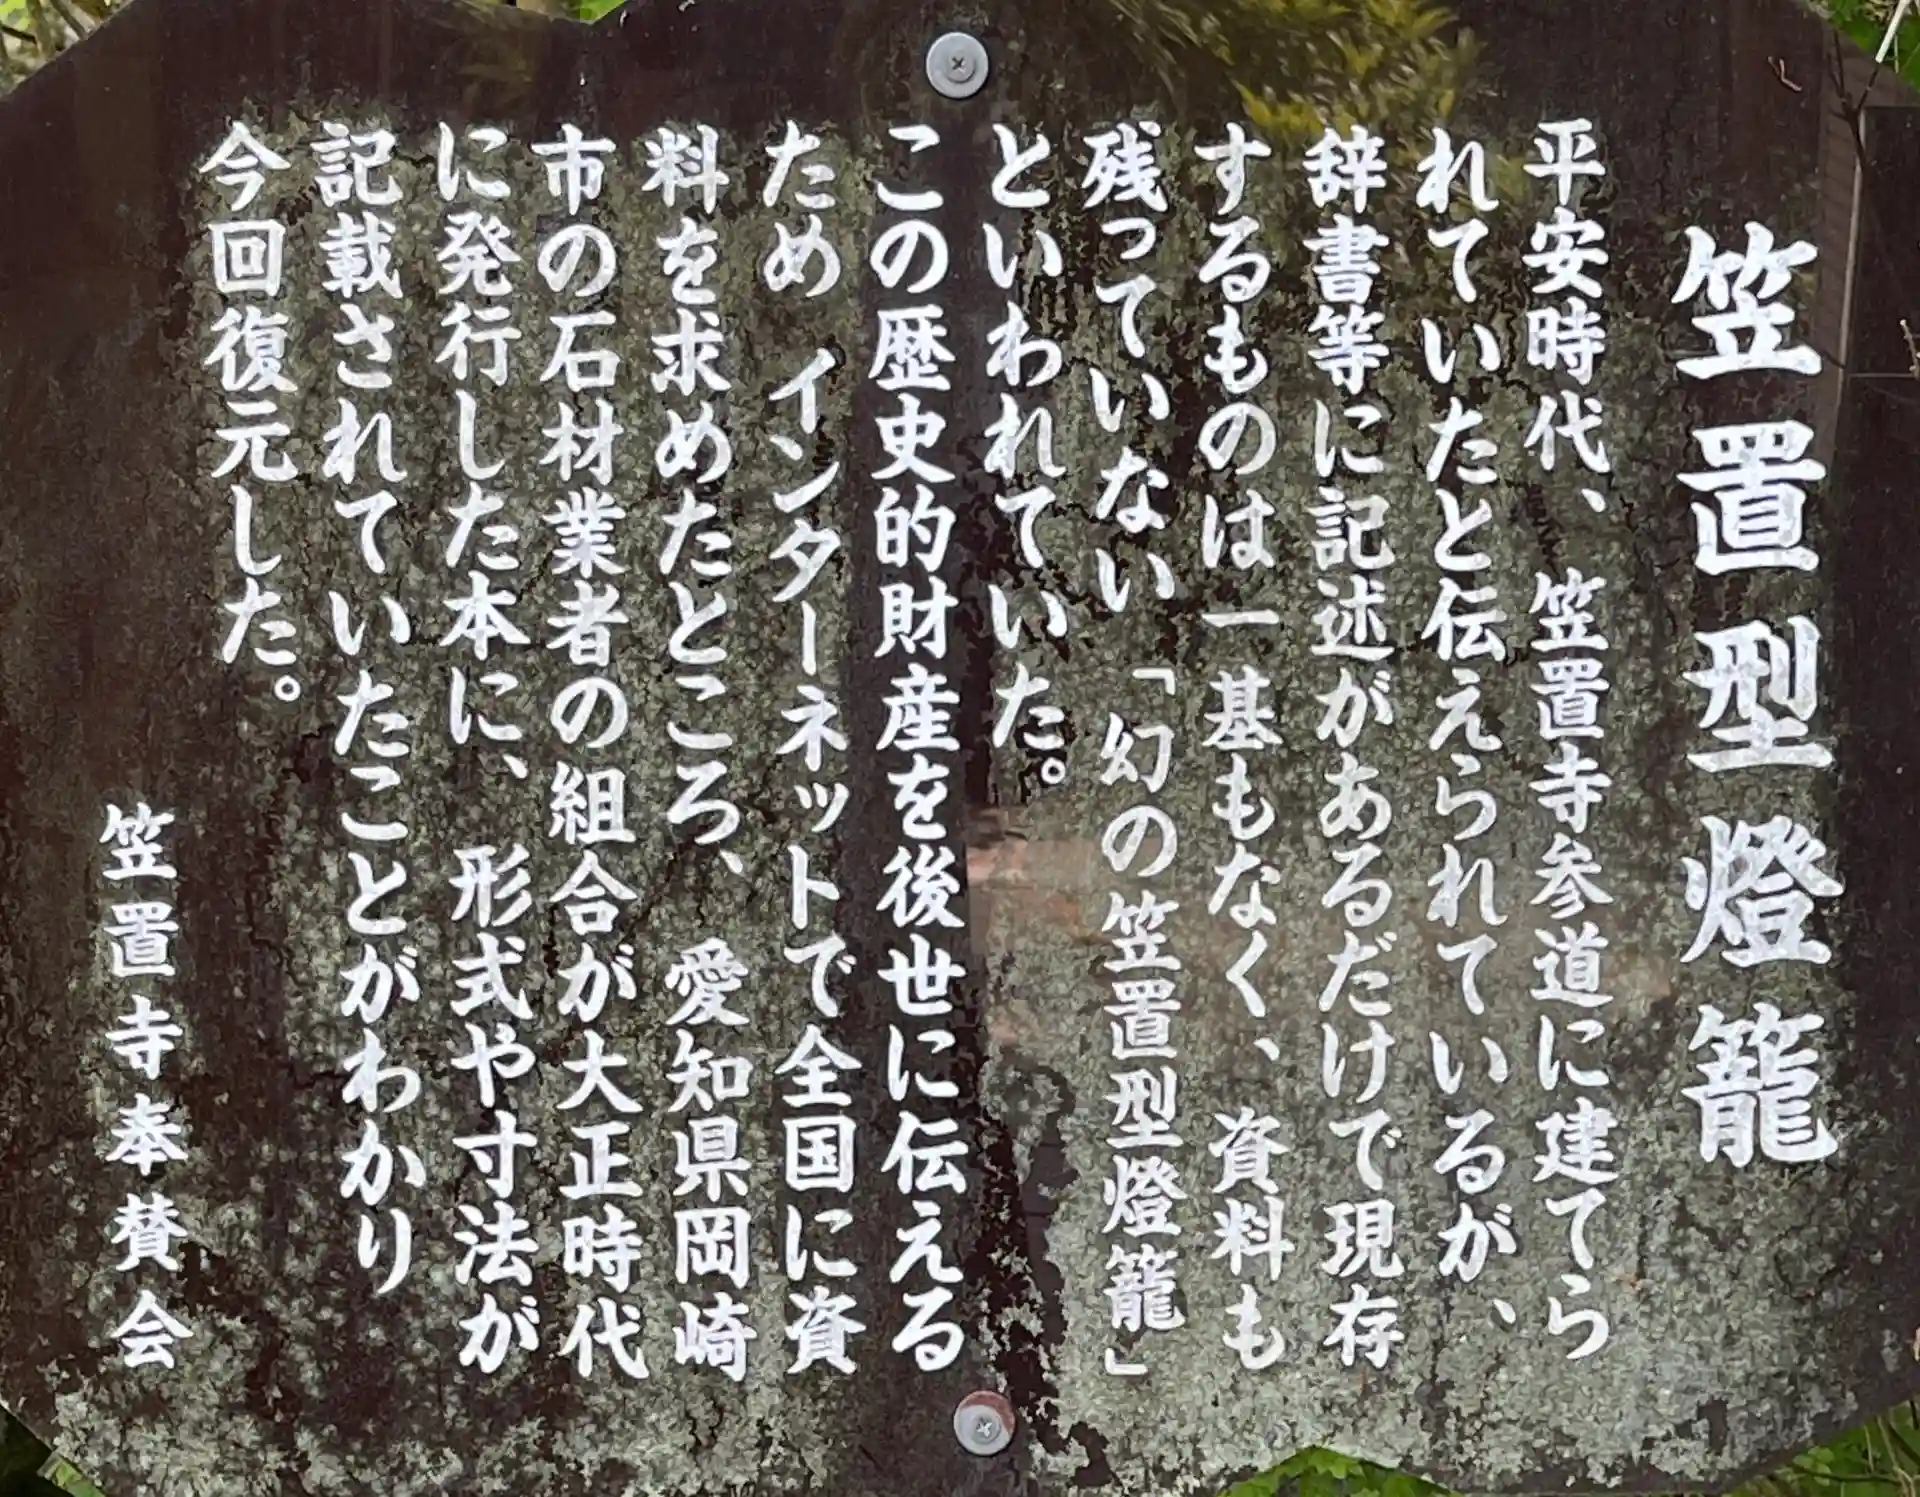 笠置型燈籠
平安時代、笠置寺参道に建てら
れていたと伝えられているが、
辞書等に記述があるだけで現存
するものは一基もなく、資料も
残っていない「幻の笠置型燈籠」
といわれていた。
この歴史的財産を後世に伝える
ため インターネットで全国に資
料を求めたところ、愛知県岡崎
市の石材業者の組合が大正時代
に発行した本に、形式や寸法が
記載されていたことがわかり
今回復元した。
笠置寺奉賛会